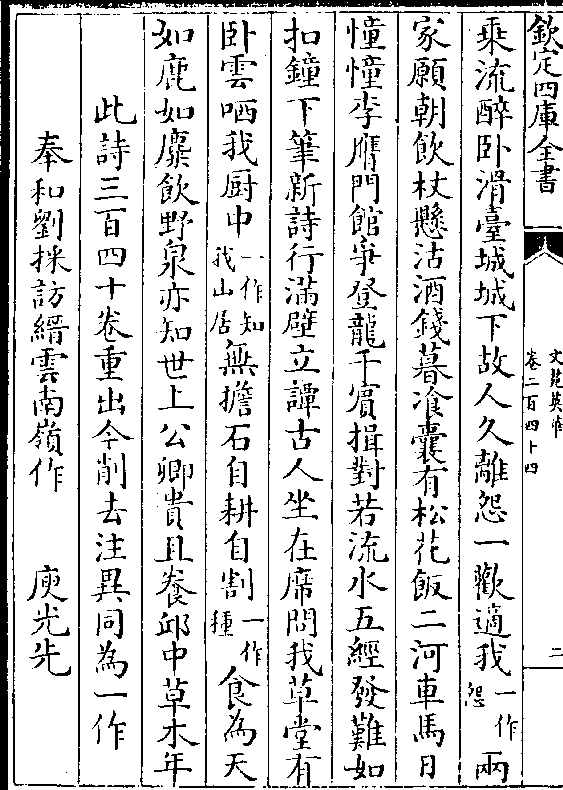 欽定四庫全書
文苑英華
卷二百四十四
二
乘流醉卧滑臺城城下故人久離怨一歡適我一作怨兩
家願朝飲杖懸沽酒錢暮飡囊有松花飯二河車馬日
憧憧李膺門館爭登龍千賔揖對若流水五經發難如
扣鐘下筆新詩行滿壁立譚古人坐在席問我草堂有
卧雲哂我厨中一作知我山居無擔石自耕自割一作種食為天
如鹿如麋飲野泉亦知世上公卿貴且養邱中草木年
此詩三百四十卷重出今削去注異同為一作
奉和劉採訪縉雲南嶺作 庾光先